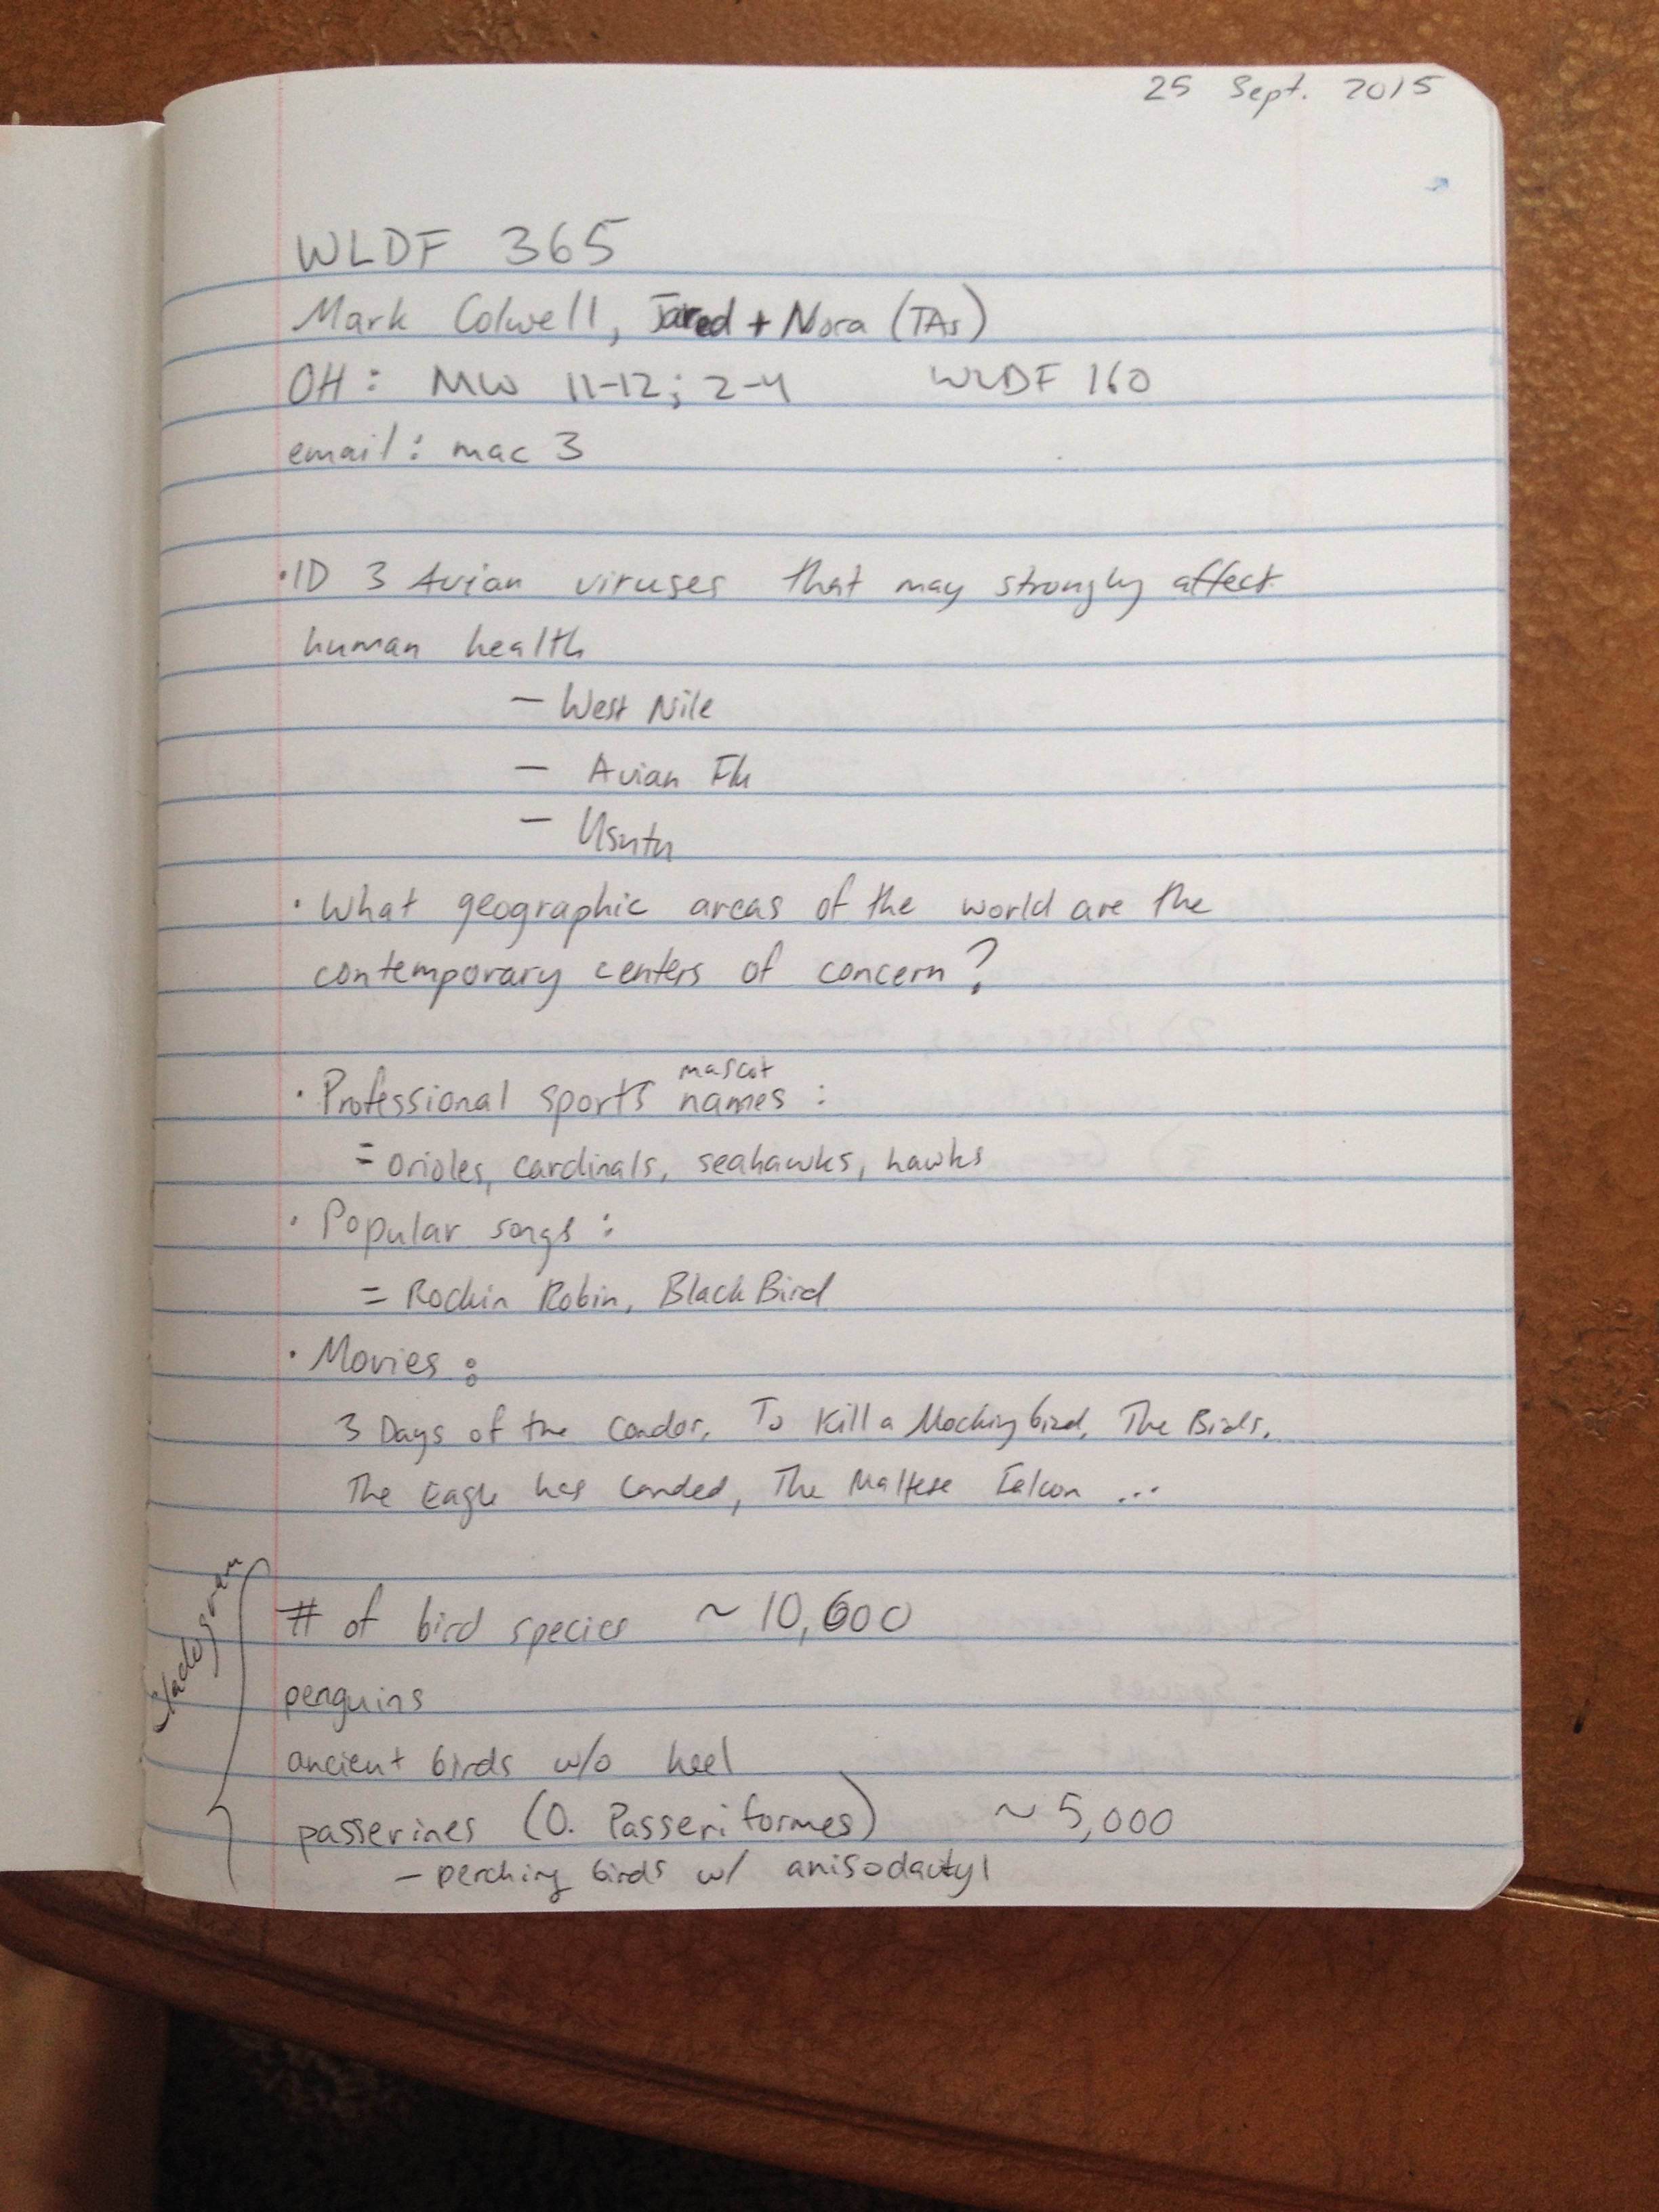 25 Sept. 2015
WLDF 365
Mark Colwell, Jared + Nora (TAs)
OH: MW 11-12; 2-4 WLDF 160
email: mac 3
·ID 3 Avian viruses that may strongly affect
human health
- West Nile
- Avian Flu
- Usutu
· What geographic areas of the world are the
contemporary centers of concern?
mascot
· Professional sports names:
= orioles, cardinals, seahawks, hawks
· Popular songs:
= Rockin Robin, BlackBird
· Movies:
3 Days of the Condor, To Kill a Mockingbird, The Birds,
The Eagle has Landed, The Maltese Falcon ...
Cladogram
# of bird species ~ 10,600
penguins
ancient birds w/o keel
passerines (O. Passeriformes) ~ 5,000
- perching birds w/ anisodactyl